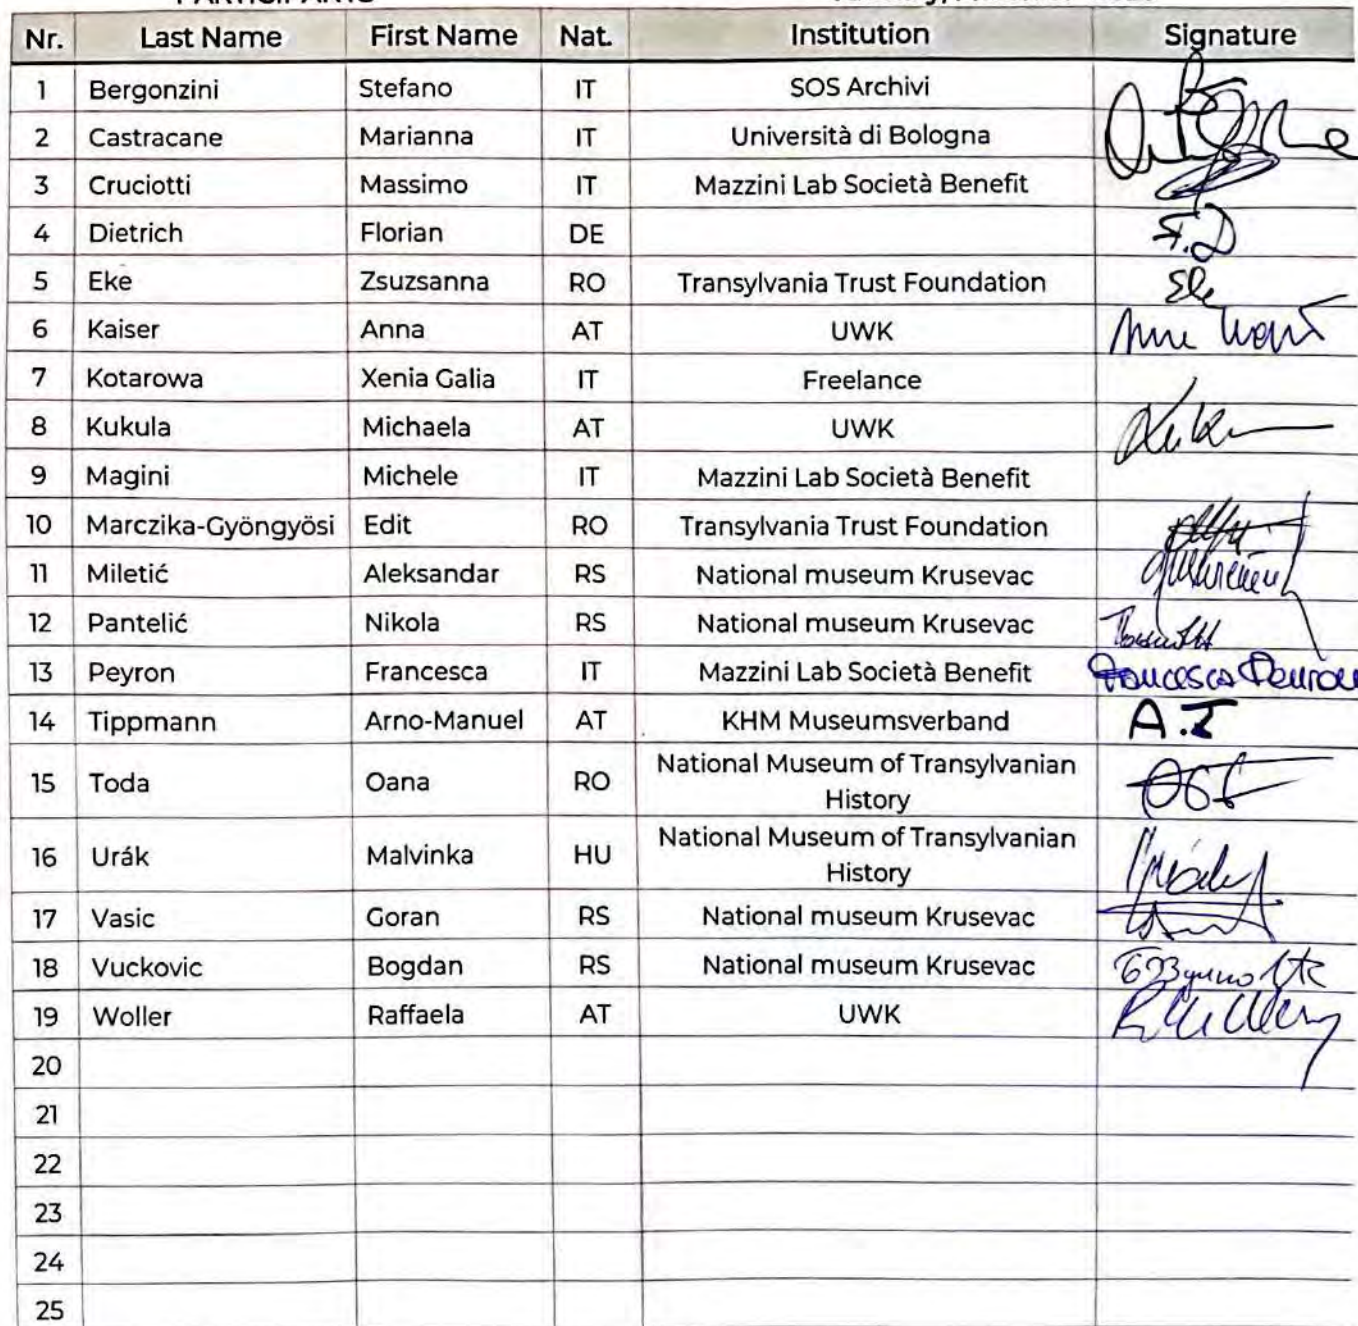 PARTICIPANTS
Nr. Last Name First Name Nat. Institution Signature
1 Bergonzini Stefano IT SOS Archivi
2 Castracane Marianna IT Università di Bologna
3 Cruciotti Massimo IT Mazzini Lab Società Benefit
4 Dietrich Florian DE F.D
5 Eke Zsuzsanna RO Transylvania Trust Foundation Eke
6 Kaiser Anna AT UWK
7 Kotarowa Xenia Galia IT Freelance
8 Kukula Michaela AT UWK
9 Magini Michele IT Mazzini Lab Società Benefit
10 Marczika-Gyöngyösi Edit RO Transylvania Trust Foundation
11 Miletić Aleksandar RS National museum Krusevac
12 Pantelić Nikola RS National museum Krusevac
13 Peyron Francesca IT Mazzini Lab Società Benefit Francesca Peyron
14 Tippmann Arno-Manuel AT KHM Museumsverband A.T
15 Toda Oana RO National Museum of Transylvanian
History
16 Urák Malvinka HU National Museum of Transylvanian
History
17 Vasic Goran RS National museum Krusevac
18 Vuckovic Bogdan RS National museum Krusevac
19 Woller Raffaela AT UWK
20
21
22
23
24
25